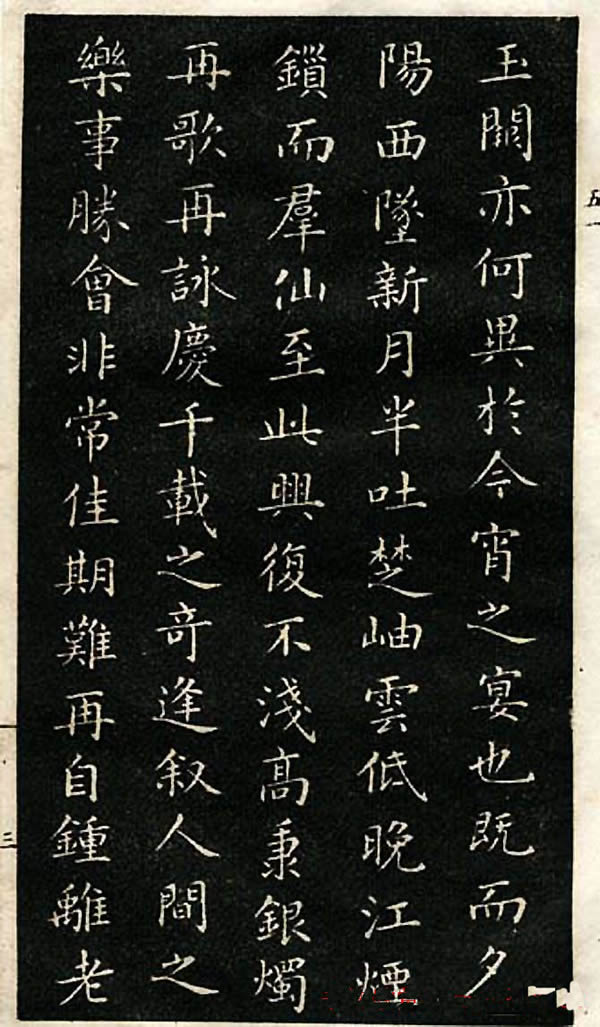 玉闕亦何異於今宵之宴也既而夕
陽西墜新月半吐楚岫雲低晚江煙
鎖而羣仙至此興復不淺高秉銀燭
再歌再詠慶千載之奇逢叙人間之
樂事勝會非常佳期難再自鍾離老
三